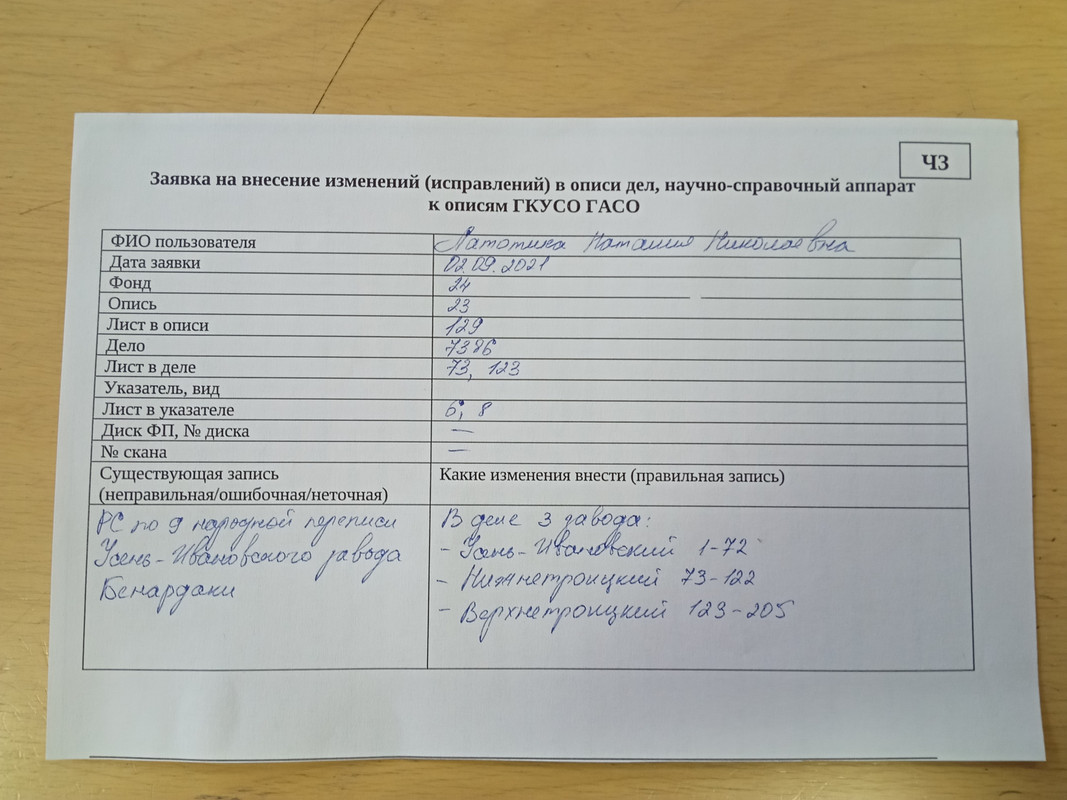 ЧЗ
Заявка на внесение изменений (исправлений) в описи дел, научно-справочный аппарат
к описям ГКУСО ГАСО
ФИО пользователя Наталия Николаевна
Дата заявки 02.09.2021
Фонд 24
Опись 23
Лист в описи 129
Дело 7386
Лист в деле 73, 123
Указатель, вид
Лист в указателе 6; 8
Диск ФП, № диска —
№ скана —
Существующая запись
(неправильная/ошибочная/неточная)
Какие изменения внести (правильная запись)
РС по 9 народной переписи
Усень-Ивановского завода
Бенардаки
В деле 3 завода:
- Усень-Ивановский 1-72
- Нижнетроицкий 73-122
- Верхнетроицкий 123-205